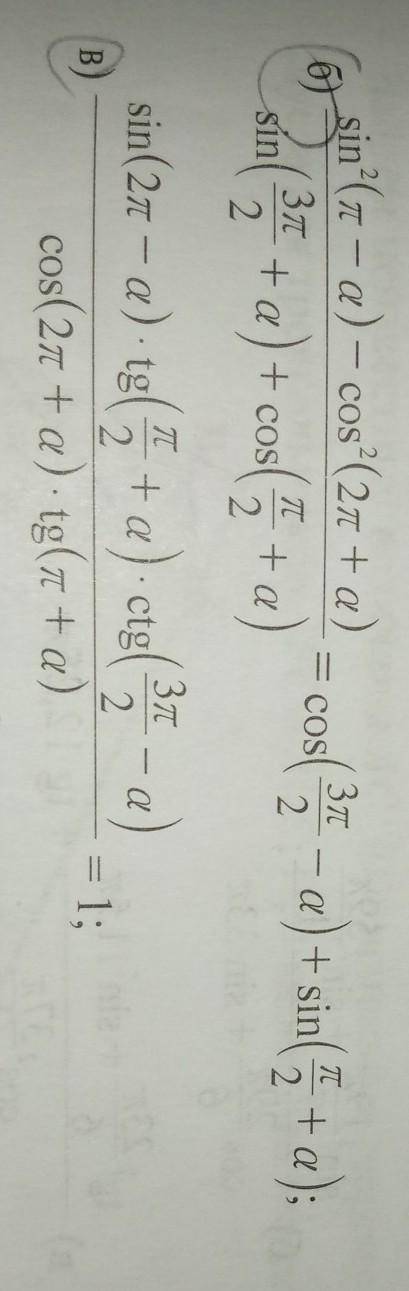 б) \frac{\sin^2(\pi - \alpha) - \cos^2(2\pi + \alpha)}{\sin(\frac{3\pi}{2} + \alpha) + \cos(\frac{\pi}{2} + \alpha)} = \cos(\frac{3\pi}{2} - \alpha) + \sin(\frac{\pi}{2} + \alpha);
в) \frac{\sin(2\pi - \alpha) \cdot \text{tg}(\frac{\pi}{2} + \alpha) \cdot \text{ctg}(\frac{3\pi}{2} - \alpha)}{\cos(2\pi + \alpha) \cdot \text{tg}(\pi + \alpha)} = 1;